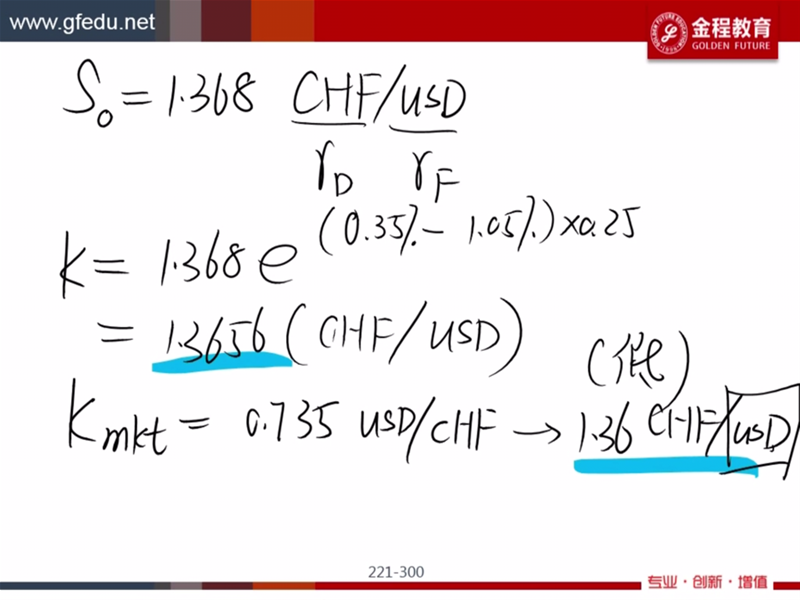 www.gfedu.net
金程教育
GOLDEN FUTURE
S₀ = 1.368 CHF/USD
r_D r_F
K = 1.368 e^(0.35% - 1.05%)×0.25
= 1.3656 (CHF/USD)
(低)
K_mkt = 0.735 USD/CHF → 1.36 CHF/USD
221-300
专业·创新·增值